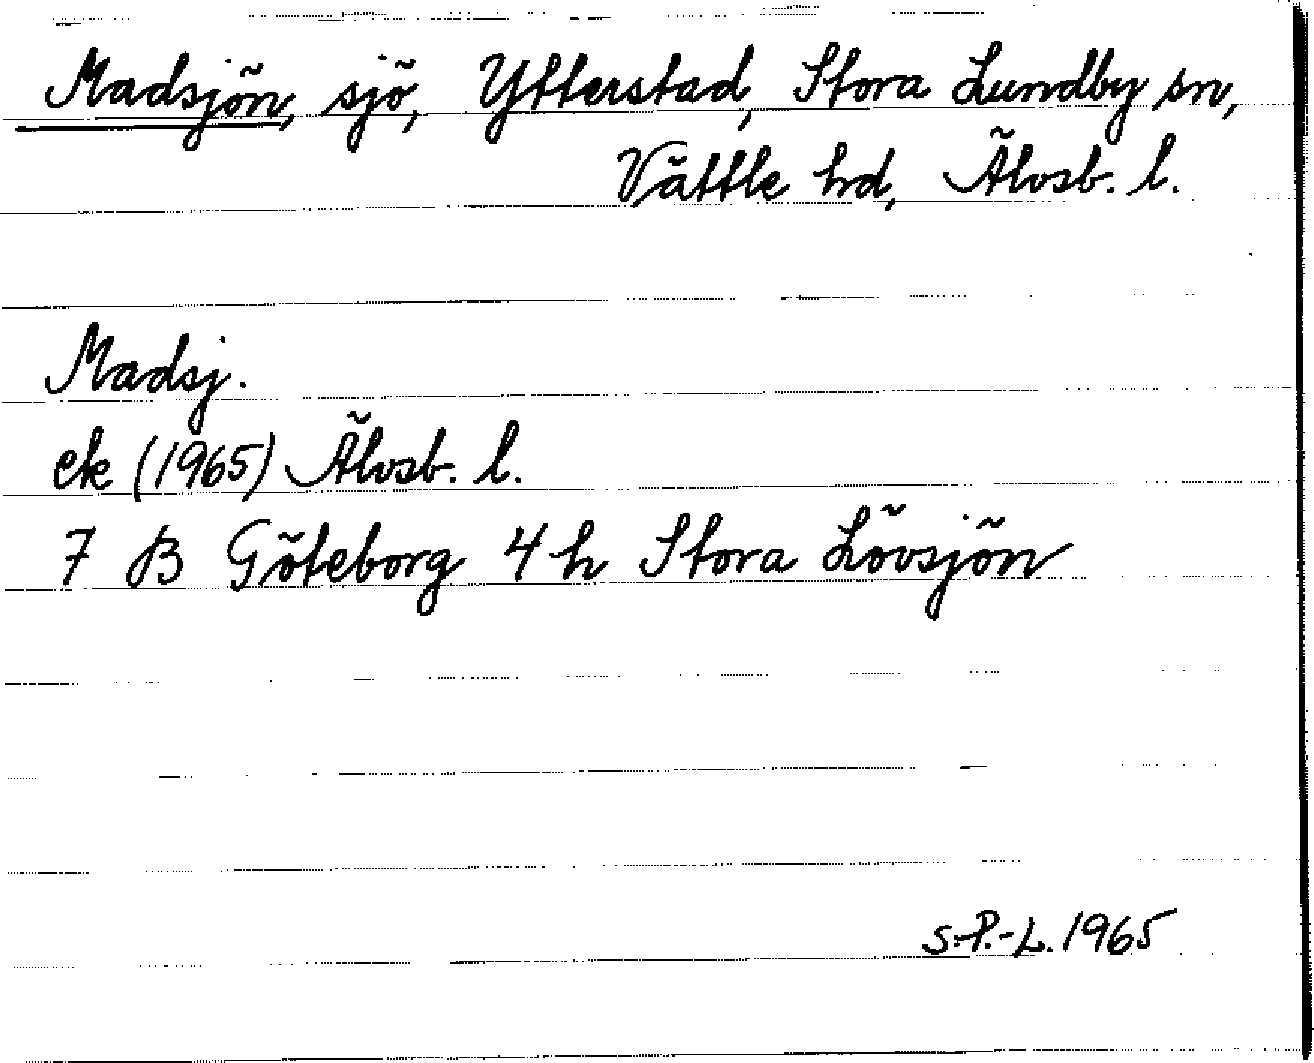 Madsjön, sjö, Ytterstad, Stora Lundby sn,
Vättle hd, Älvsb. l.
Madsj.
ek (1965) Älvsb. l.
7 B Göteborg 4 h Stora Lövsjön
S.P.-L. 1965